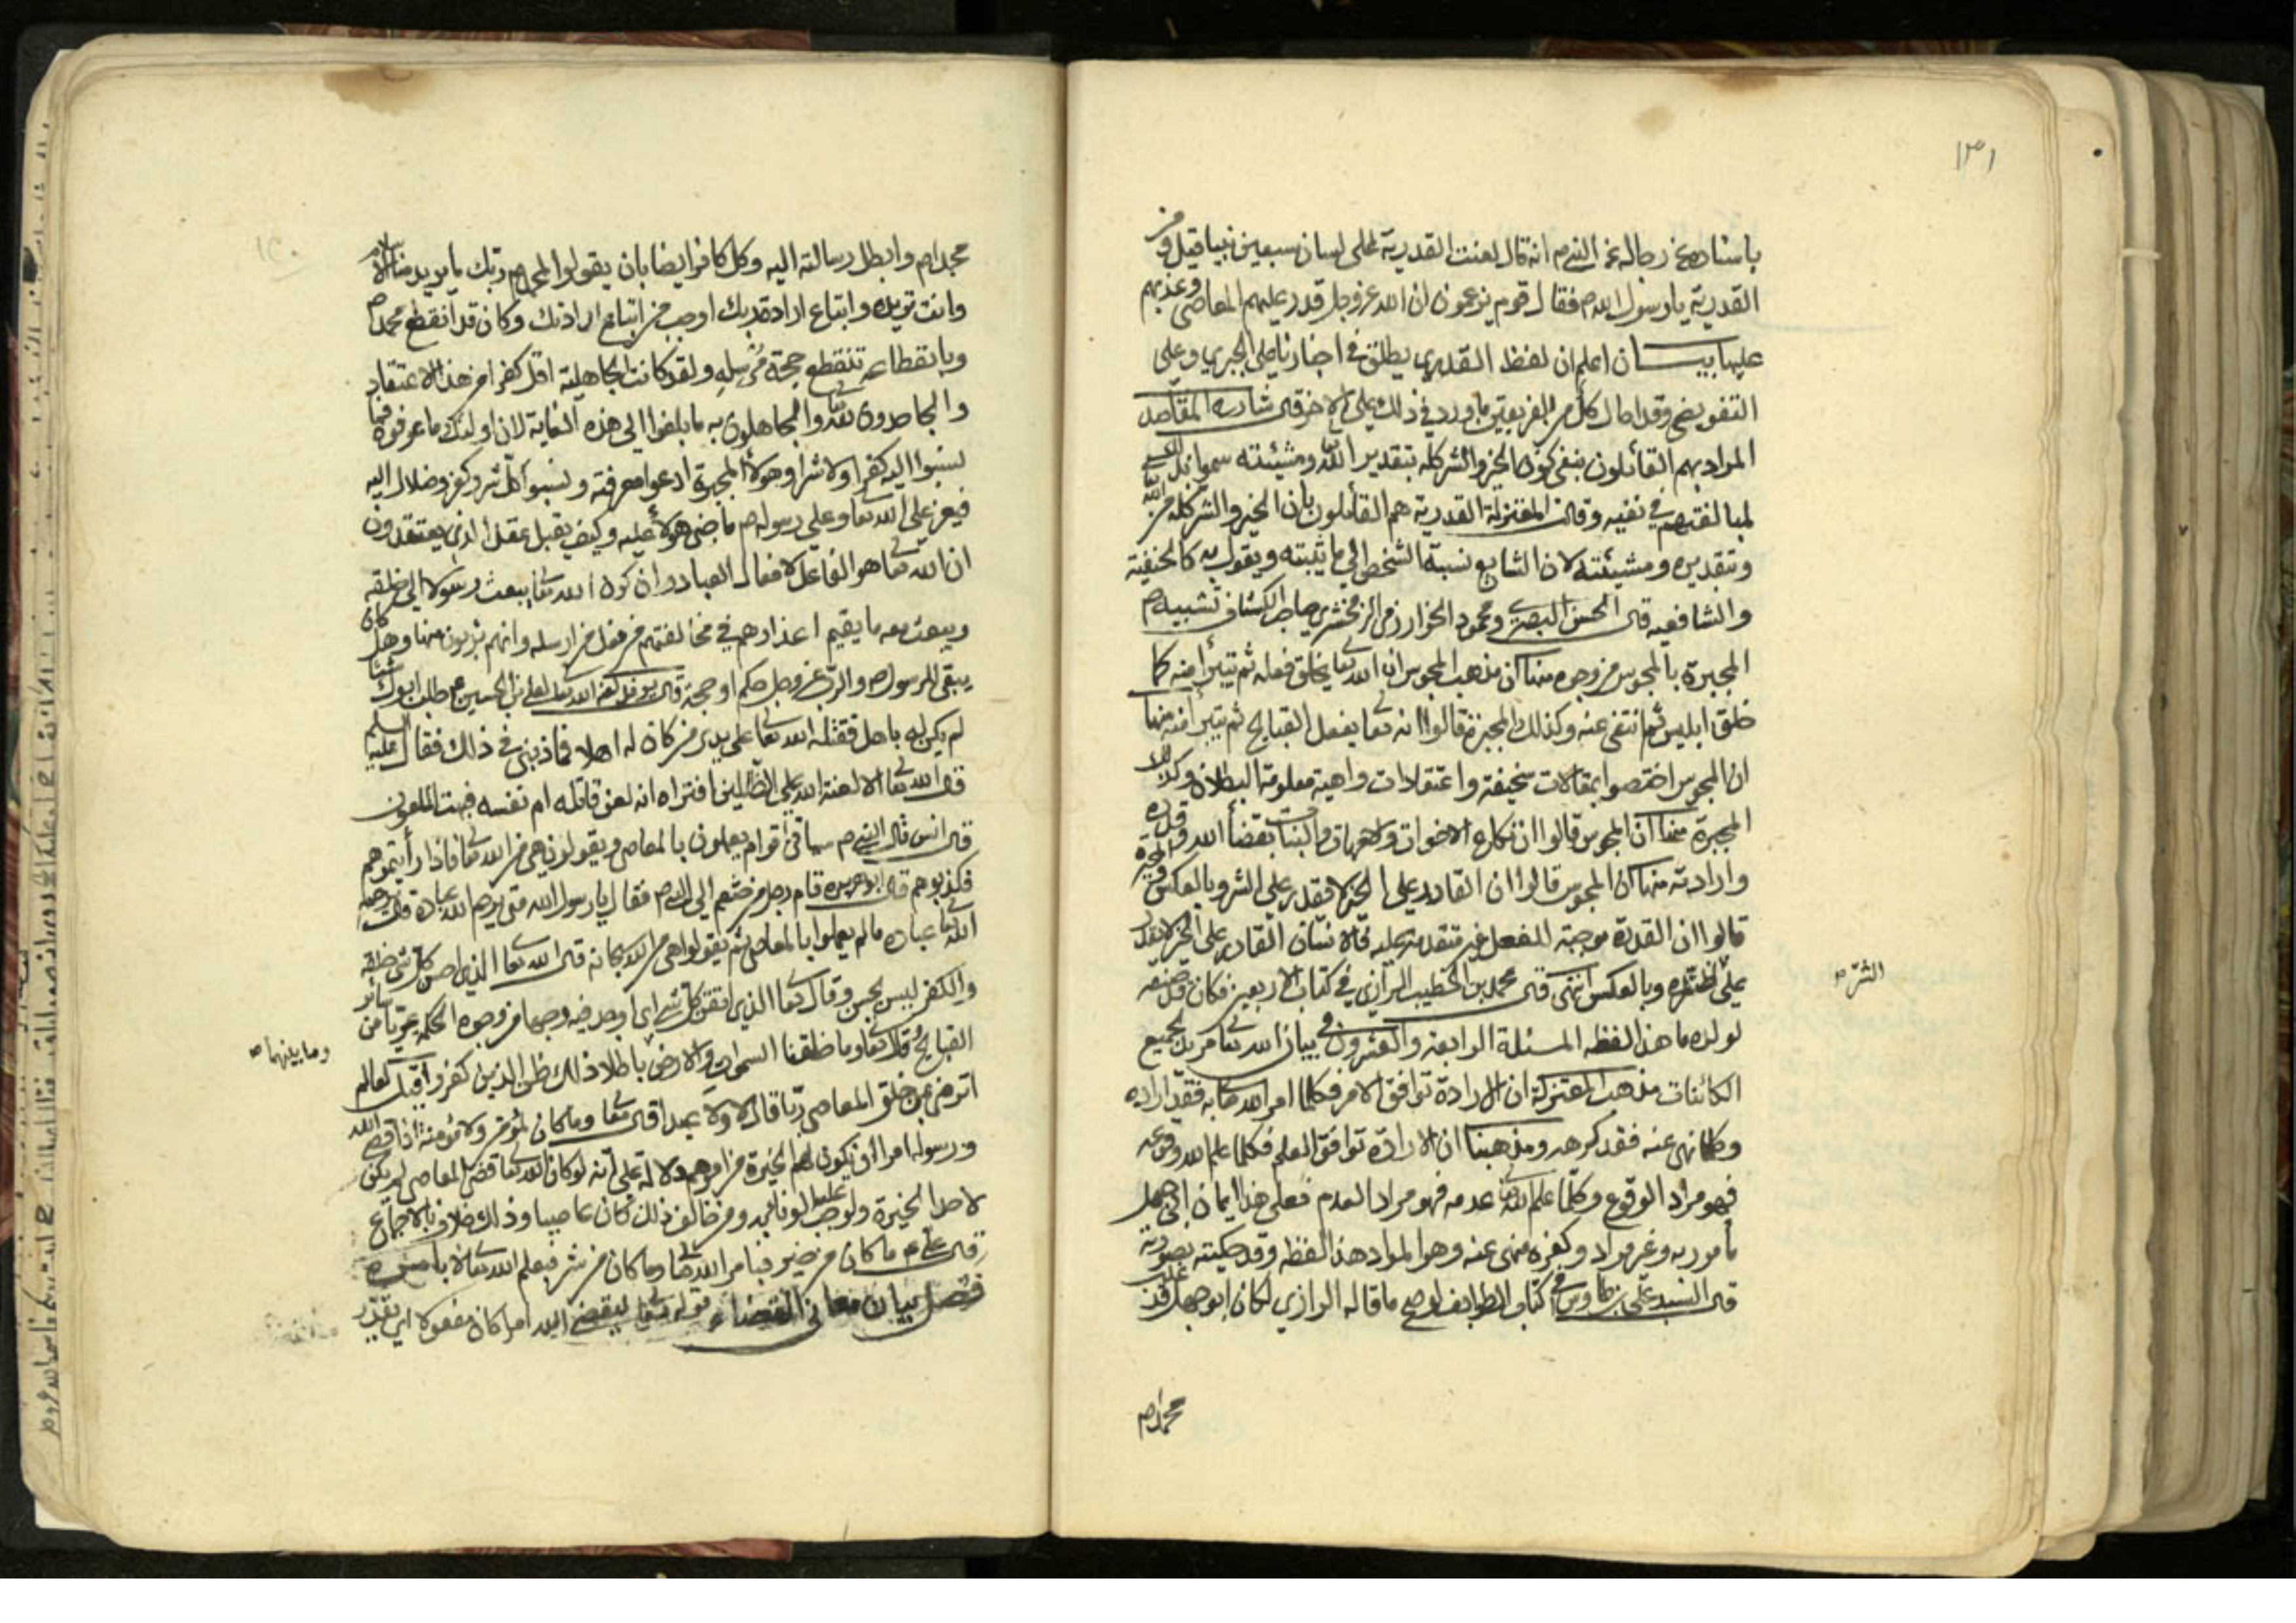 ١٣١
باسناده عن رجاله عن النبي ص انه قال لعنت القدرية على لسان سبعين نبيا قيل ومن
القدرية يا رسول الله ص فقال قوم يزعمون ان الله عز وجل قدر عليهم المعاصي وعذبهم
عليها بيـــان اعلم ان لفظ القدري يطلق في اخبارنا على الجبري وعلى
التفويضي وقد احال كل من الفريقين ما ورد في ذلك على الاخر قال شارح المقاصد
المراد بهم القائلون بنفي كون الخير والشر كله بتقدير الله ومشيئته سموا بذلك
لمبالغتهم في نفيه وقالت المعتزلة القدرية هم القائلون بان الخير والشر كله من الله
وبتقديره ومشيئته لان الشايع نسبة الشخص الى ما يثبته ويقول به كالحنفية
والشافعيه قال الحسن البصري ومحمود الخوارزمي الزمخشري صاحب الكشاف تشبيه
المجبرة بالمجوس من وجوه منها ان مذهب المجوس ان الله تعا يخلق فعله ثم يتبرأ منه كما
خلق ابليس ثم انتفى عنه وكذلك المجبرة قالوا انه تعا يفعل القبايح ثم يتبرأ منها منها
ان المجوس اختصوا بمقالات سخيفة واعتقادات واهية معلومة البطلان وكذلك
المجبرة منها ان المجوس قالوا ان نكاح الاخوات والامهات والبنات بقضاء الله وقدره
وارادته منها ان المجوس قالوا ان القادر على الخير لا يقدر على الشر وبالعكس والمجبرة
قالوا ان القدرة موجبة للفعل غير متقدمة عليه فالانسان القادر على الخير لا يقدر
على ضده وبالعكس انتهى قال محمد بن الخطيب الرازي في كتاب الاربعين
الشر ص
لولده ما هذا لفظه المسئلة الرابعة والعشرون في بيان ان الله تعا مريد لجميع
الكائنات مذهب المعتزلة ان الارادة توافق الامر فكلما امر الله تعا به فقد اراده
وكلما نهى عنه فقد كرهه ومذهبنا ان الارادة توافق العلم فكلما علم الله وقوعه
فهو مراد الوقوع وكلما علم الله عدمه فهو مراد العدم فعلى هذا ايمان ابي جهل
مأمور به وغير مراد وكفره منهى عنه وهو المراد هذا لفظه وقد حكيته بصورته
قال السيد علي بن طاوس في كتاب الطرايف لو صح ما قاله الرازي لكان ابو جهل قد
محمدا ص
محمدا ص وابطل رسالته اليه وكل كافر ايضا بان يقولوا لمحمد ص ربك ما يريد منا الاسلام
وانت تريده واتباع ارادة ربك اوجب من اتباع ارادتك وكان قد انقطع محمد ص
وبانقطاعه تنقطع حجة مرسله ولقد كانت الجاهلية اقل كفرا من هذا الاعتقاد
والجاحدون لله والجاهلون به ما بلغوا الى هذه الغاية لان اولئك ما عرفوه فما
نسبوا اليه كفرا ولا شرا وهولاء المجبرة ادعوا معرفته ونسبوا كل شر وكفر وضلال اليه
فيعز على الله تعا وعلى رسوله ص ما جنى هولاء عليه وكيف يقبل عقل الذي يعتقدون
ان الله تعا هو الفاعل لافعال العباد وان كون الله تعا يبعث رسولا الى خلقه
ويبعث معه ما يقيم اعذارهم في مخالفتهم من فعل من ارسله وانهم بريون منها وهل كان
يبقى للرسول ص والرب عز وجل حكم او حجة
لم يكن له باهل فقتله الله تعا على يدي من كان له اهلا فما ذنبي في ذلك فقال عليه السلم
قال الله تعا الا لعنة الله على الظالمين افتراه انه لعن قاتله ام نفسه فبهت الملعون
قال انس قال النبي ص سياتي اقوام يعملون بالمعاصي ويقولون هي من الله تعا فاذا رأيتموهم
فكذبوهم قال ابو هريره قام رجل من خثعم الى النبي ص فقال يا رسول الله متى يرحم الله عباده قال يرحم
الله تعا عباده ما لم يعملوا بالمعاصي ثم يقولوا هي من الله سبحانه قال الله تعا الذي احسن كل شئ خلقه
والكفر ليس بحسن وقال تعا الذي اتقن كل شئ اي اوجد فيه وجها من وجوه الحكمة عريا من سائر
القبايح وقال تعا وما خلقنا السموات والارض باطلا ذلك ظن الذين كفروا
وما بينهما ص
اترضى عن خلق المعاصي ربنا قال لا ولا عبدا قال تعا وما كان لمؤمن ولا مؤمنة اذا قضى الله
ورسوله امرا ان يكون لهم الخيرة من امرهم دلالة على انه لو كان الله تعا قضى المعاصي لم يكن
لاحد الخيرة ولوجب علينا الوفا به ومن خالف ذلك كان عاصيا وذلك خلاف الاجماع
قال علي ع ما كان من خير فبامر الله تعا وما كان من شر فبعلم الله تعا لا بامره
فصل بيان معاني القضاء قوله تعا ليقضي الله امرا كان مفعولا اي يقدر